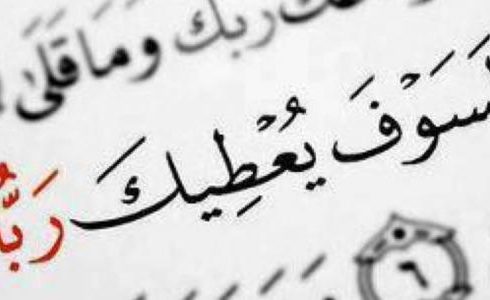 ربك وما قلى
سَوْفَ يُعْطِيكَ رَبُّ
٦